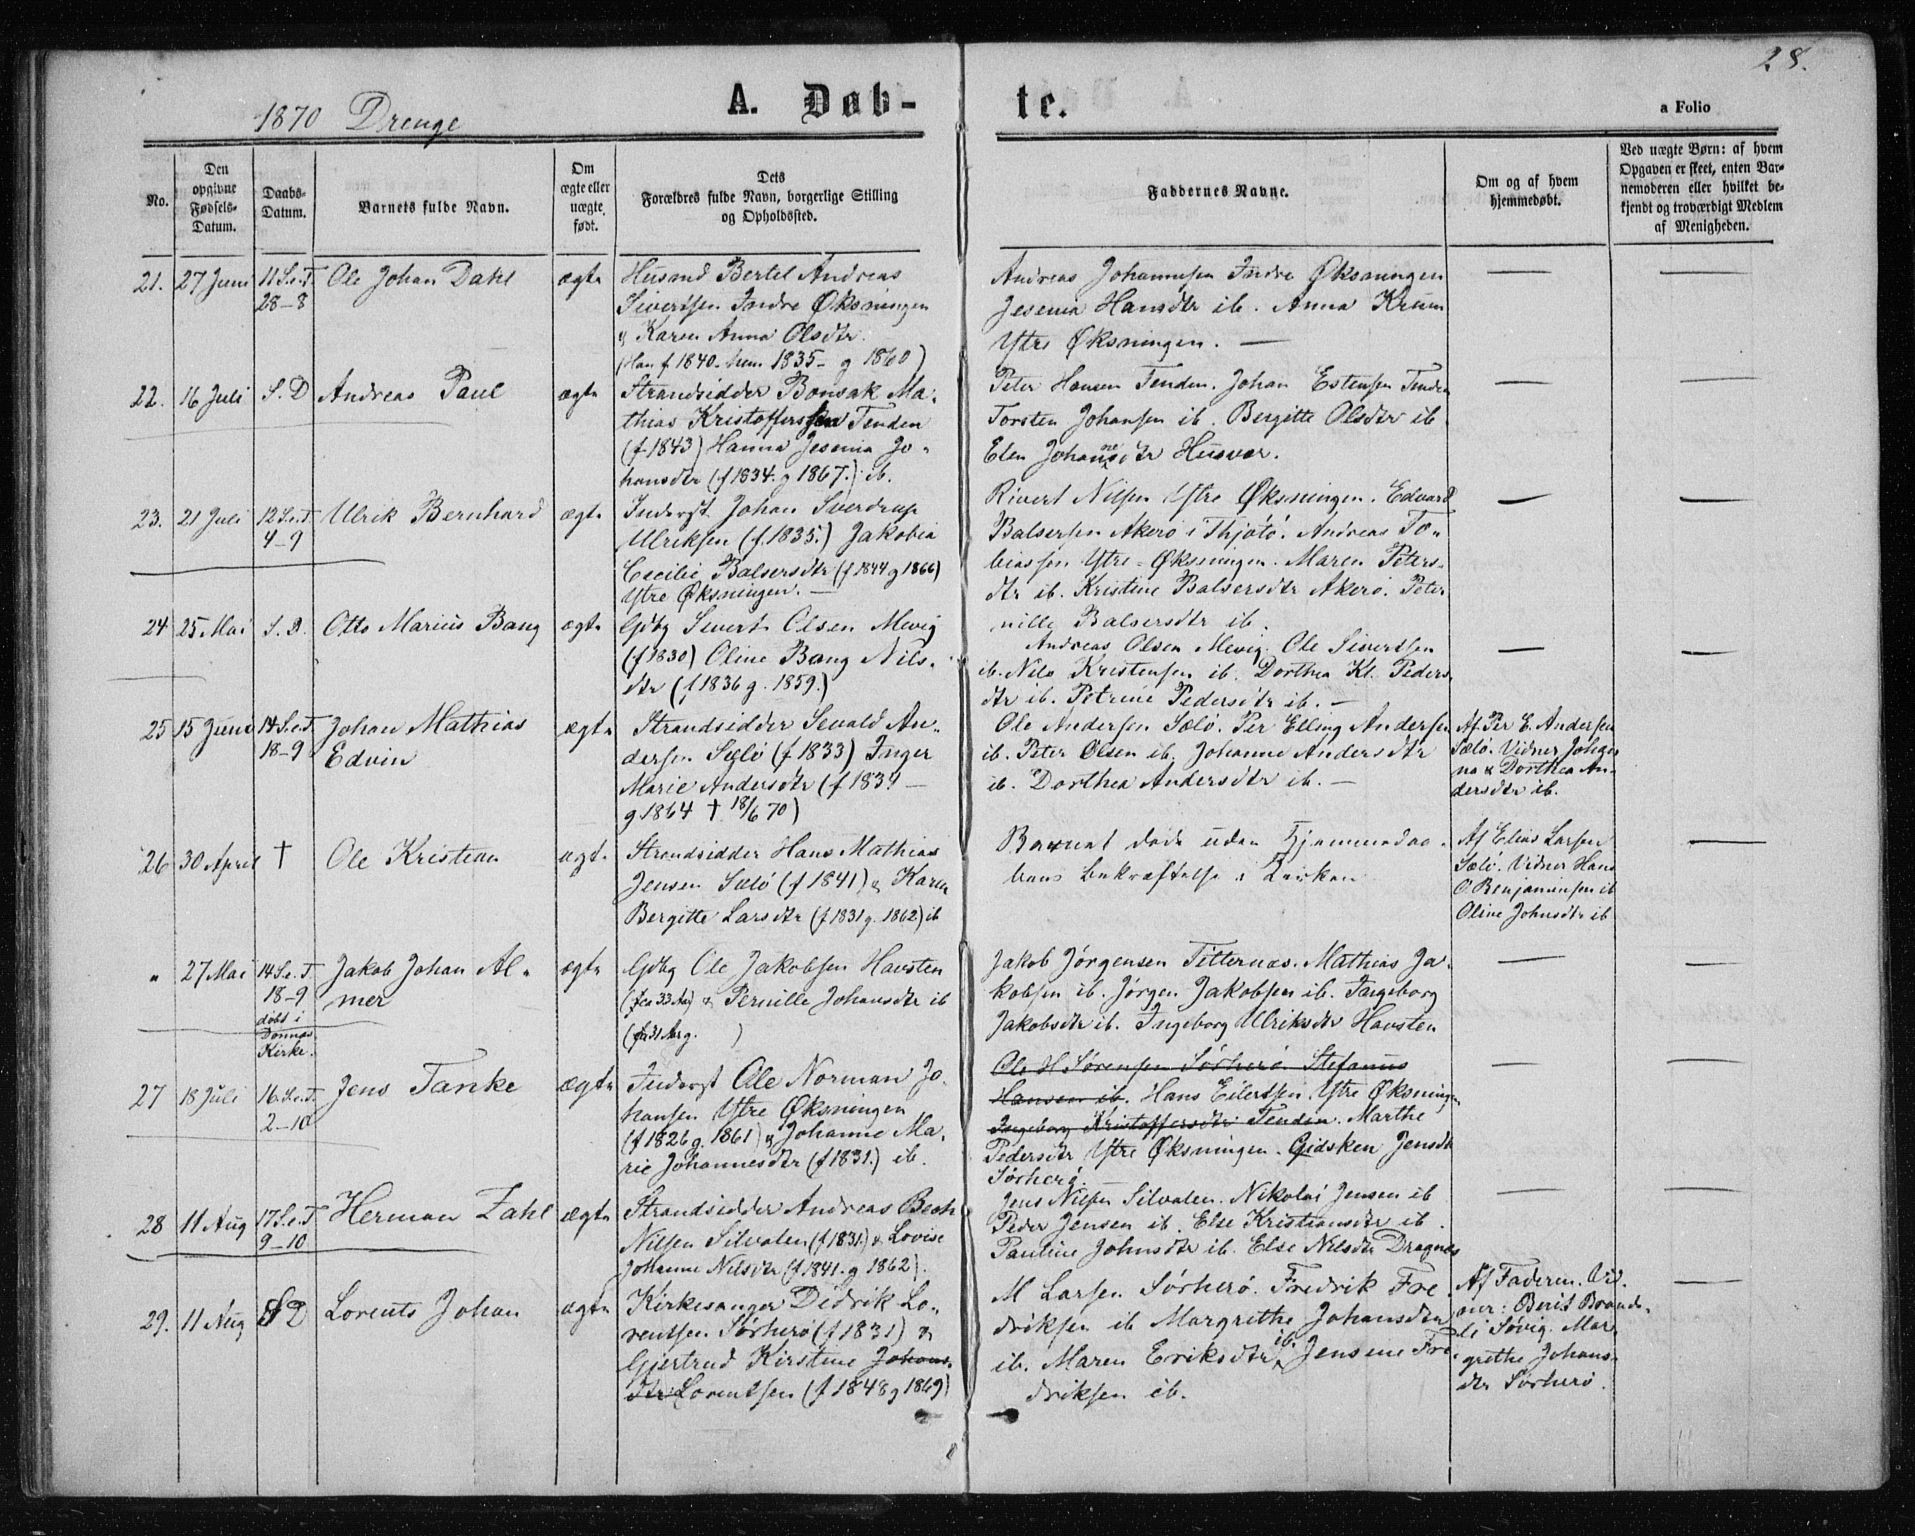 28.
1870 Drenge
A. Døb-
te.
a Folio
No.
Den opgivne Fødsels-Datum.
Daabs-Datum.
Barnets fulde Navn.
Om ægte eller uægte født.
Dets Forældres fulde Navn, borgerlige Stilling og Opholdssted.
Faddernes Navne.
Om og af hvem hjemmedøbt.
Ved uægte Børn: af hvem Opgaven er skeet, enten Barnemoderen eller hvilket bekjendt og troværdigt Medlem af Menigheden.
21. 27 Juni 11 S.e.T. 28-8 Ole Johan Dahl ægte
Husmd Bertel Andreas
Sivertsen Indre Øksningen
& Karen Anna Olsdtr.
(Han f. 1840. hun 1835- g 1860)
Andreas Johannesen Indre Øksningen
Jesenia Hansdtr ib. Anna Krum
Ytre Øksningen. —
22. 16 Juli S.D Andreas Paul ægte
Strandsidder Bonsak Ma-
thias Kristoffersen Tenden
(f 1843) Hanna Jesenia Jo-
hansdtr (f 1834. g 1867.) ib.
Peter Hansen Tenden. Johan Estensen Tenden
Torsten Johansen ib. Bergitte Olsdtr ib.
Elen Johannesdtr Husvær.
23. 21 Juli 12 S.e.T 4-9 Ulrik Bernhard ægte
Inderst Johan Sverdrup
Ulriksen (f. 1835.) Jakobia
Cecilie Balsersdtr (f 1844 g 1866)
Ytre Øksningen. —
Rivert Nilsen Ytre Øksningen. Edvard
Balsersen Akerø i Thjøtø. Andreas To-
biassen Ytre-Øksningen. Maren Peters-
dtr ib. Kristine Balsersdtr Akerø. Peter
nille Balsersdtr ib.
24 25 Mai S.D. Otto Marius Bang ægte
Gdbg Sivert Olsen Mevig
(f 1830) Oline Bang Nils-
dtr (f 1836 g. 1859.)
Andreas Olsen Mevig. Ole Sivertsen
ib. Nils Kristensen ib. Dorthea Kl. Peders-
dtr ib. Petrine Pedersdtr ib. —
25 15 Juni 14 S.e.T. 18-9 Johan Mathias
Edvin ægte
Strandsidder Sevald An-
dersen Sælø (f 1833) Inger
Marie Andersdtr (f 183? —
g 1864 † 18/6 70)
Ole Andersen Sælø. Per Elling Andersen
ib. Peter Olsen ib. Johanne Andersdtr
ib. Dorthea Andersdtr ib. —
Af Per E. Andersen
Sælø. Vidner Johan
na & Dorthea An-
dersdtr ib.
26 30 April † Ole Kristian ægte
Strandsidder Hans Mathias
Jensen Sælø (f 1841) & Karen
Bergitte Larsdtr (f 1831 g. 1862) ib
Barnet døde uden Hjemmedaa-
bens bekræftelse i Kirken
Af Elias Larsen
Sælø. Vidner Hans
O. Benjaminsen ib
Oline Johnsdtr ib
" 27 Mai 14 S.e.T. 18-9 døbt i Dønnes Kirke. Jakob Johan Al-
mer ægte
Gdbg Ole Jakobsen Havsten
(f ca 33 Aar) & Pernille Johansdtr ib
(f ca 31 Aar g. )
Jakob Jørgensen Titternæs. Mathias Ja-
kobsen ib. Jørgen Jakobsen ib. Ingeborg
Jakobsdtr ib. Ingeborg Ulriksdtr Havsten
27 18 Juli 16. S.e.T. 2-10 Jens Tanke ægte
Inderst Ole Norman Jo-
hansen Ytre Øksningen
(f 1826 g. 1861) & Johanne Ma-
rie Johannesdtr (f 1831.) ib.
Ole H Sørensen Sørherø Stefanus
Hansen ib. Hans Eilertsen Ytre Øksningen
Ingeborg Kristoffersdtr Tenden. Marthe
Pedersdtr Ytre Øksningen. Gidsken Jensdtr
Sørherø. —
28 11 Aug 17 S.e.T 9-10 Herman Zahl ægte
Strandsidder Andreas Bech
Nilsen Silvalen (f 1831) & Lovise
Johanne Nilsdtr (f 1841. g 1862).
Jens Nilsen Silvalen. Nikolai Jensen ib
Peder Jensen ib. Else Kristiansdtr ib.
Pauline Johnsdtr ib. Else Nilsdtr Dragnes
29. 11 Aug S D Lorents Johan ægte
Kirkesanger Didrik Lo-
rentsen Sørherø (f 1831) &
Gjertrud Kirstine Johans-
dtr Lorentsen (f 1848 g 1869)
M Larsen Sørherø. Fredrik Fre-
driksen ib Margrethe Johansdtr
ib. Maren Eriksdtr ib. Jensine Fre-
driksen ib.
Af Faderen. Vid-
ner: Berit Brands-
li Søvig. Mar-
grethe Johans-
dtr Sørherø.